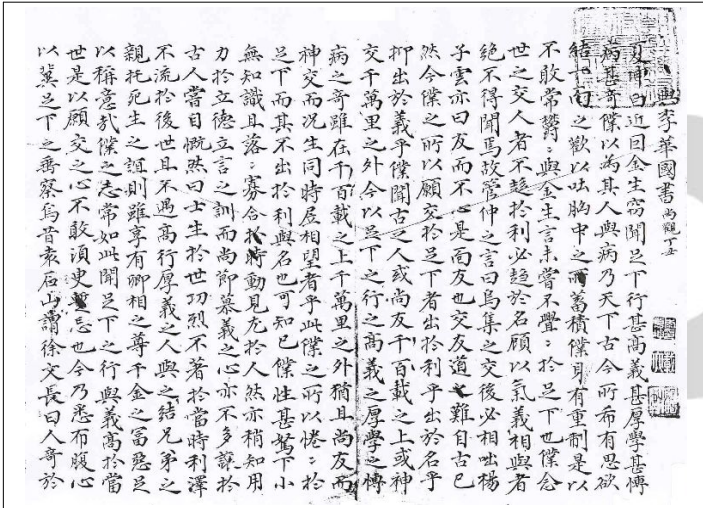 與李華國書 尚觀丁丑
夏坤白近因金生窃聞足下行甚高義甚厚學甚博
病甚奇僕以為其人與病乃天下古今所希有思欲
結一面之歡以吐胸中之蓄積僕身有重制是以
不敢常欝:與金生言未嘗不亹:於足下也僕念
世之交人者不趍於利必趍於名顧以氣義相與者
絶不得聞焉故管仲之言曰烏集之交後必相咄楊
子雲亦曰友而不心是面友也交友道之難自古已
然今僕之所以願交於足下者出於利乎出於名乎
抑出於義乎僕聞古之人或尚友千百載之上或神
交千萬里之外今以足下之行之高義之厚學之博
病之奇雖在千百載之上千萬里之外猶且尚友而
神交而况生同時居相望者乎此僕之所以惓:於
足下而其不出於利與名也可知已僕性甚駑下小
無知識且落:寡合於時動見尤於人然亦稍知用
力於立德立言之訓而尚節慕義之心亦不多讓於
古人嘗自慨然曰士生於世功烈不著於當時利澤
不流於後世且不遇高行厚義之人與之結兄弟之
親托死生之誼則雖享有卿相之尊千金之富惡足
以稱意哉僕之志常如此聞足下之行與義高於當
世是以願交之心不敢須臾蹔忘也今乃悉布腹心
以冀足下之垂察焉昔袁石公謂徐文長曰人奇於